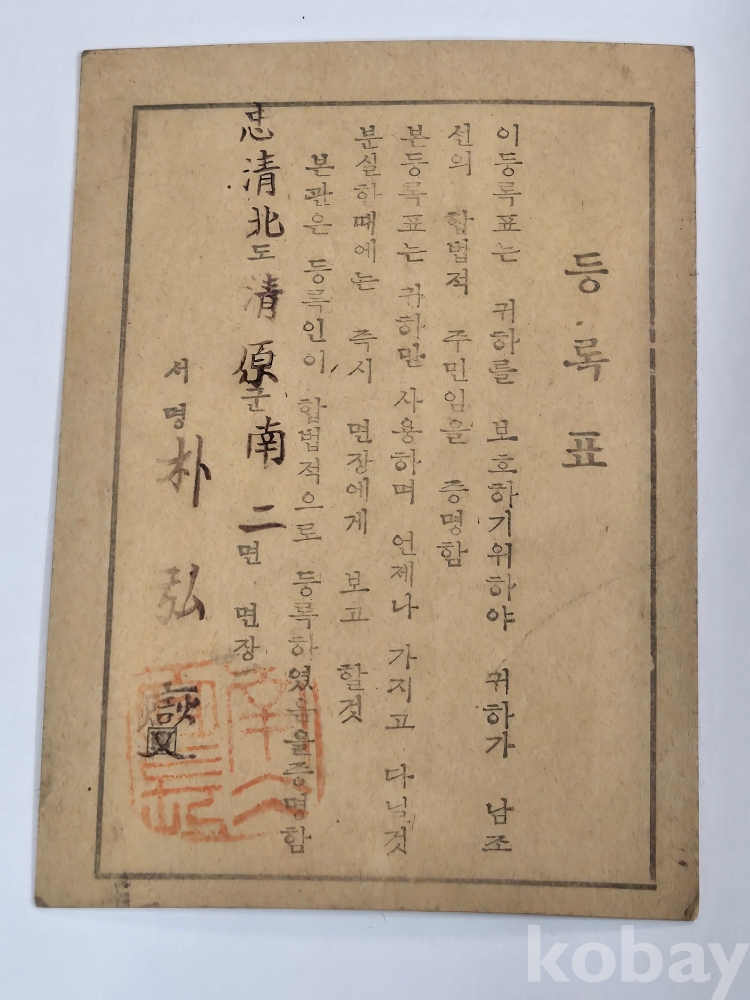 등록표
이등록표는 귀하를 보호하기위하야 귀하가 남조
선의 합법적 주민임을 증명함
본등록표는 귀하만 사용하며 언제나 가지고 다닐것
분실하때에는 즉시 면장에게 보고 할것
본관은 등록인이 합법적으로 등록하였음을증명함
忠清北도清原군南二면 면장
서명 朴弘
kobay